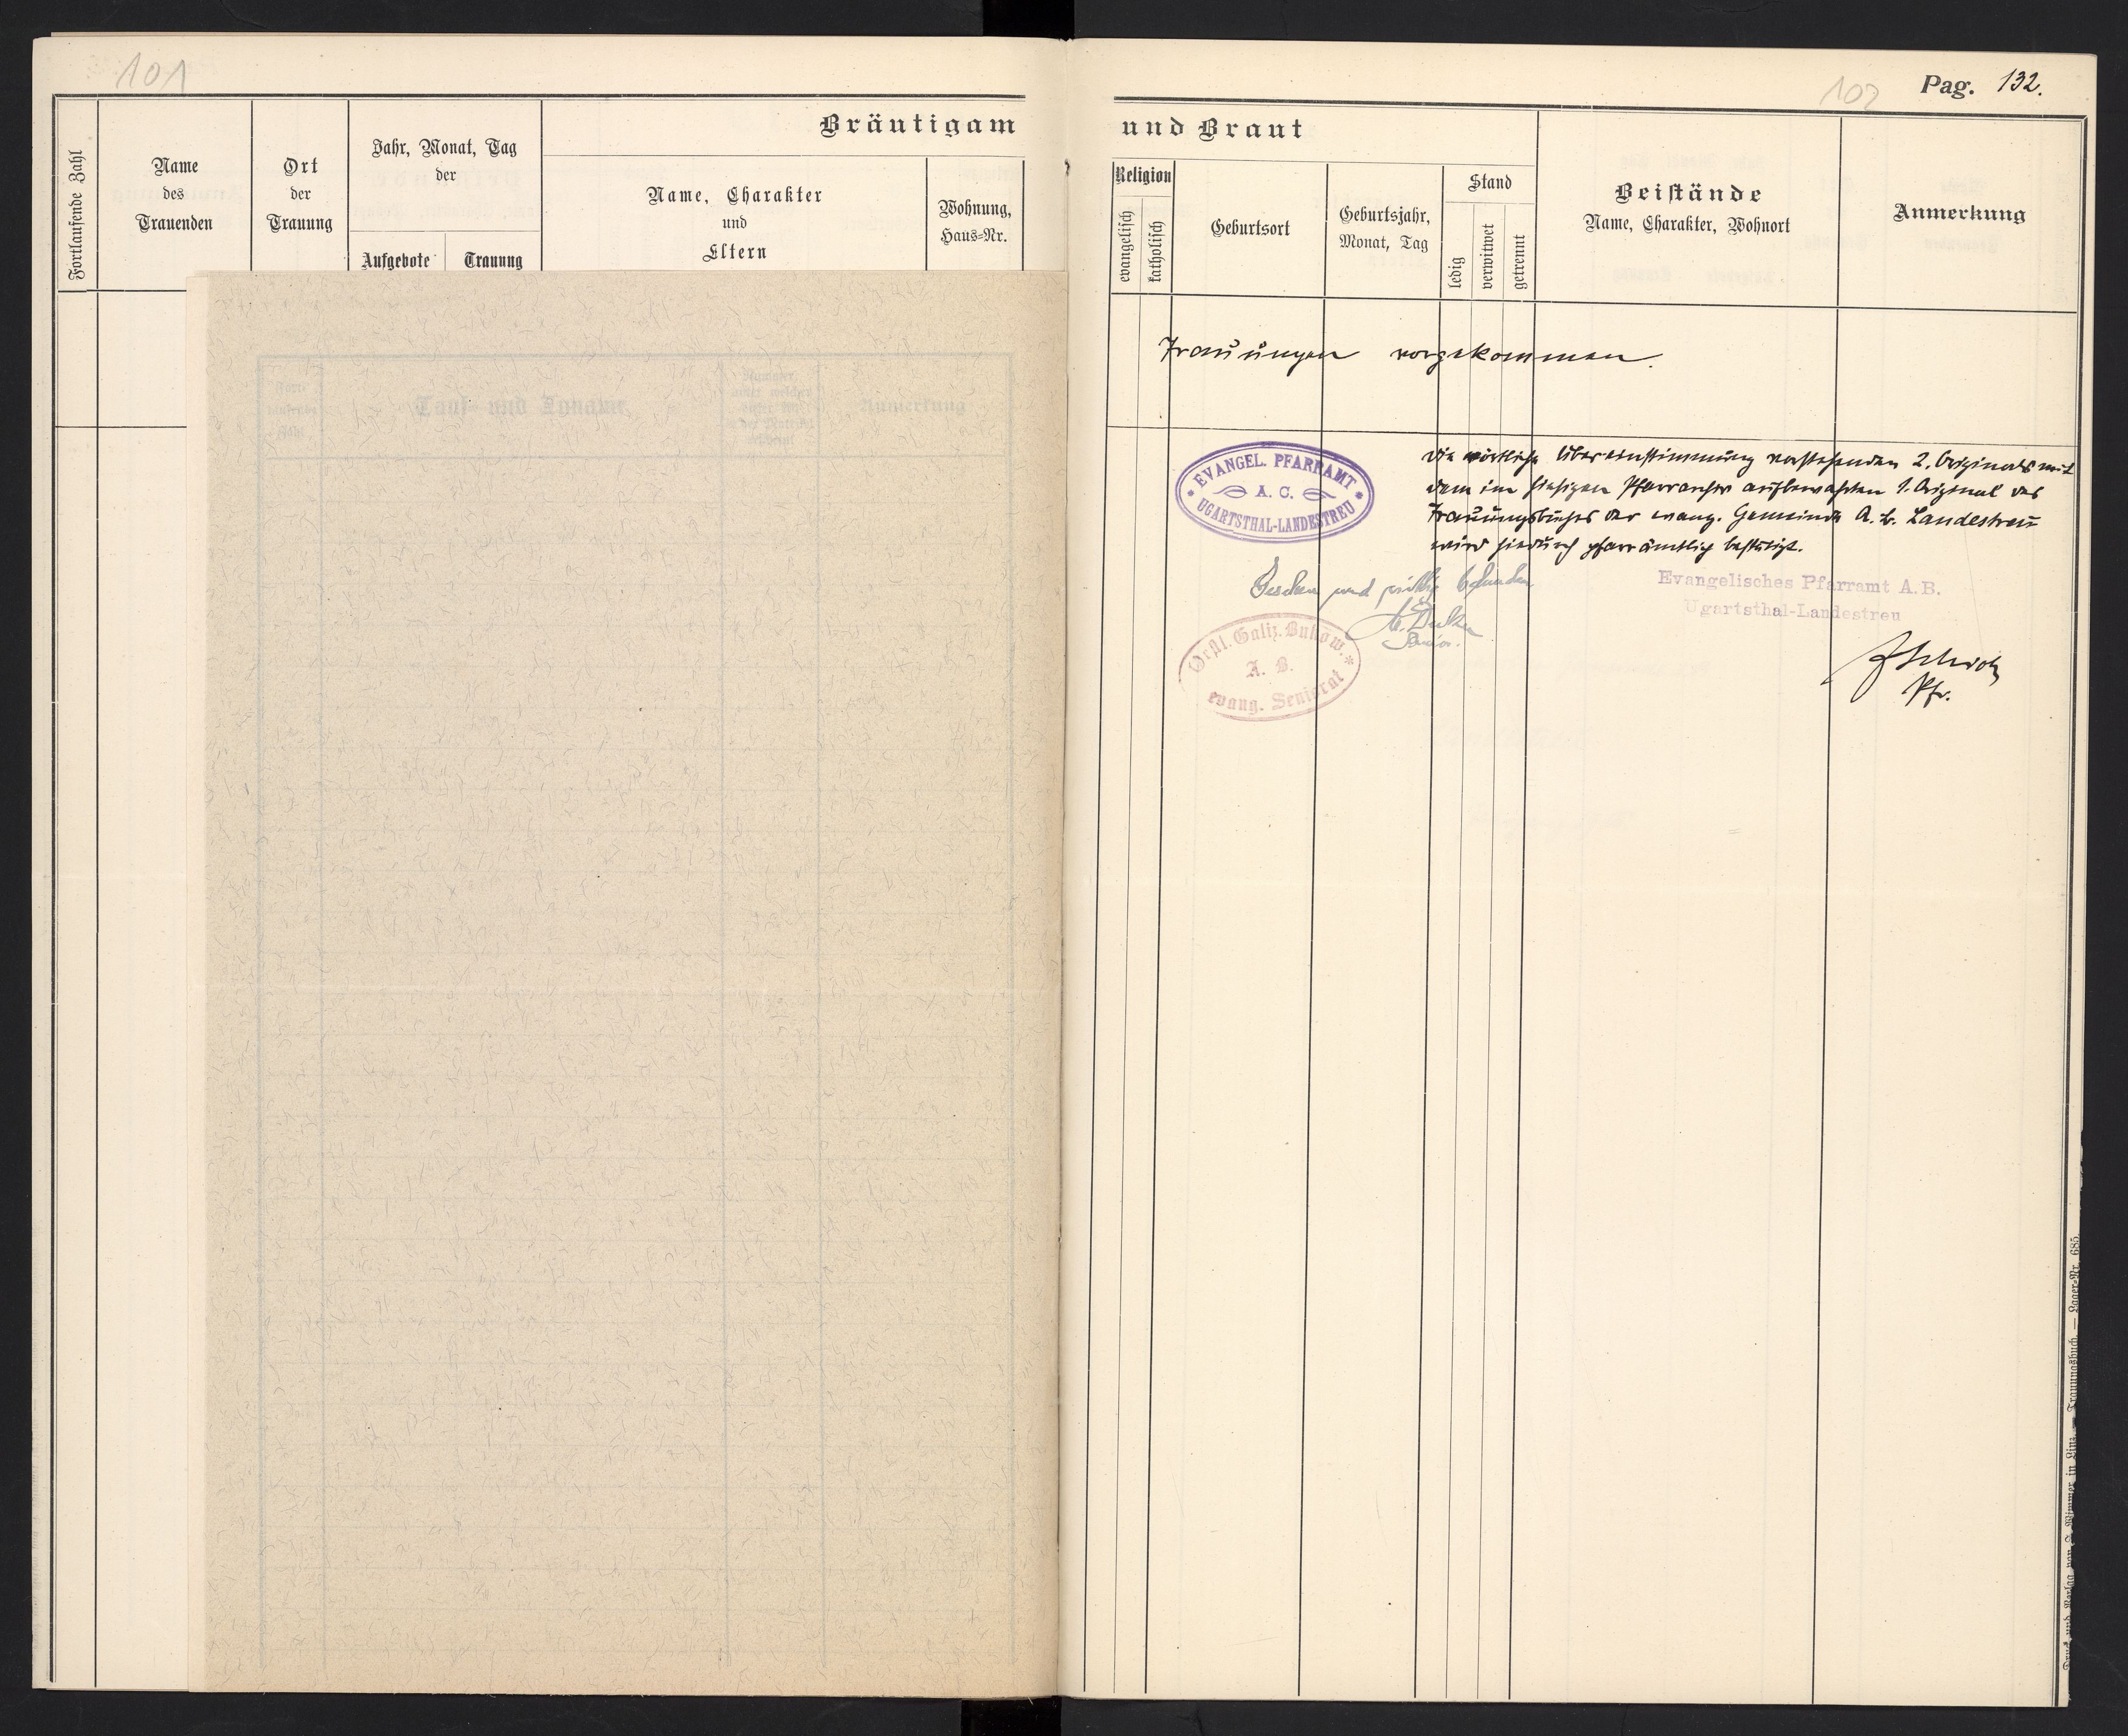 101
Fortlaufende Zahl
Name
des
Trauenden
Ort
der
Trauung
Jahr, Monat, Tag
der
Aufgebote
Trauung
Bräutigam
Name, Charakter
und
Eltern
Wohnung,
Haus-Nr.
Tauf- und Zuname
Anmerkung
102
Pag. 132.
und Braut
Religion
evangelisch
katholisch
Geburtsort
Geburtsjahr,
Monat, Tag
Stand
ledig
verwitwet
getrennt
Beistände
Name, Charakter, Wohnort
Anmerkung
Trauungen vorgekommen.
EVANGEL. PFARRAMT
A. C.
UGARTSTHAL-LANDESTREU
Die wörtliche Übereinstimmung vorstehenden 2. Originals mit
dem im hiesigen Pfarrarchiv aufbewahrten 1. Original des
Trauungsbuches der evang. Gemeinde A. B. Landestreu
wird hiedurch pfarrämtlich bestätigt.
Evangelisches Pfarramt A.B.
Ugartsthal-Landestreu
Pfr.
Gesehen und richtig befunden
Senior.
Westl. Galiz. Bukow.
A. B.
evang. Seniorat
Druck und Verlag von J. Wimmer in Linz. — Trauungsbuch. — Lager-Nr. 685.